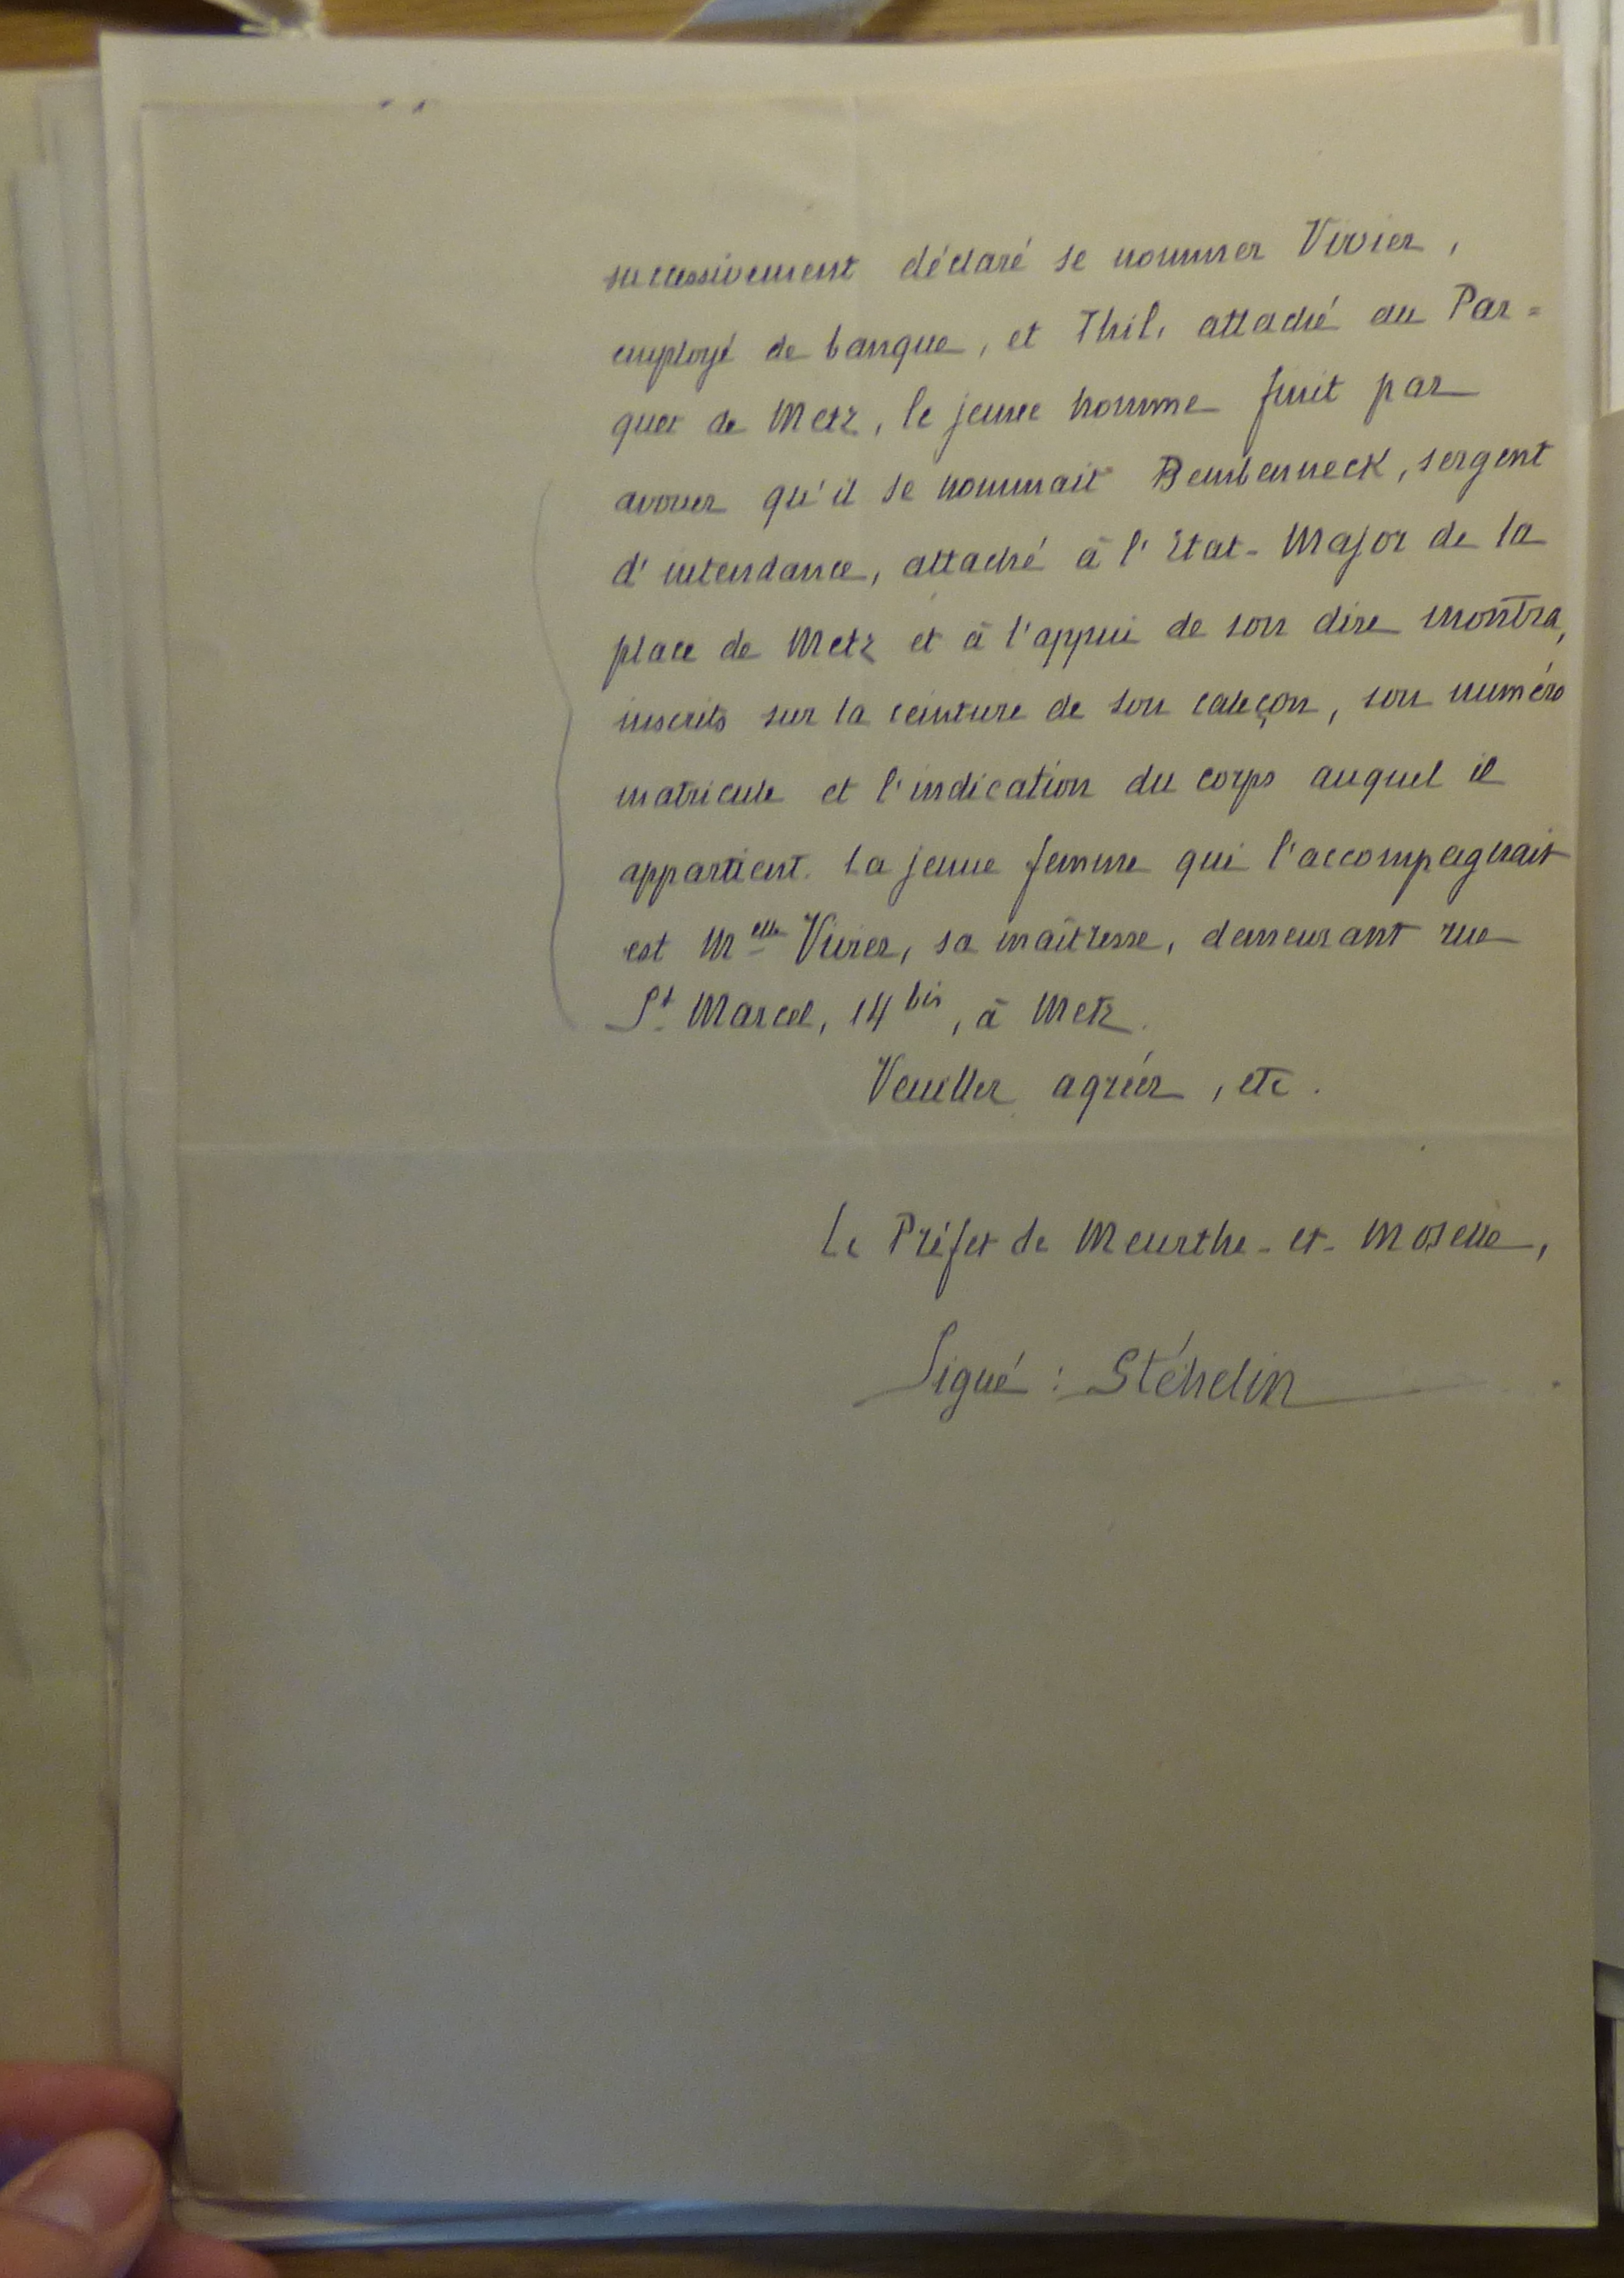 successivement déclaré se nommer Vivier,
employé de banque, et Thil, attaché au Par=
quet de Metz, le jeune homme finit par
avouer qu'il se nommait Bembenneck, sergent
d'intendance, attaché à l'Etat-Major de la
place de Metz et à l'appui de son dire montra,
inscrits sur la ceinture de son caleçon, son numéro
matricule et l'indication du corps auquel il
appartient. La jeune femme qui l'accompagnait
est Melle Vivier, sa maîtresse, demeurant rue
St Marcel, 14 bis, à Metz.
Veuillez agréer, etc.
Le Préfet de Meurthe-et-Moselle,
Signé : Stéhelin